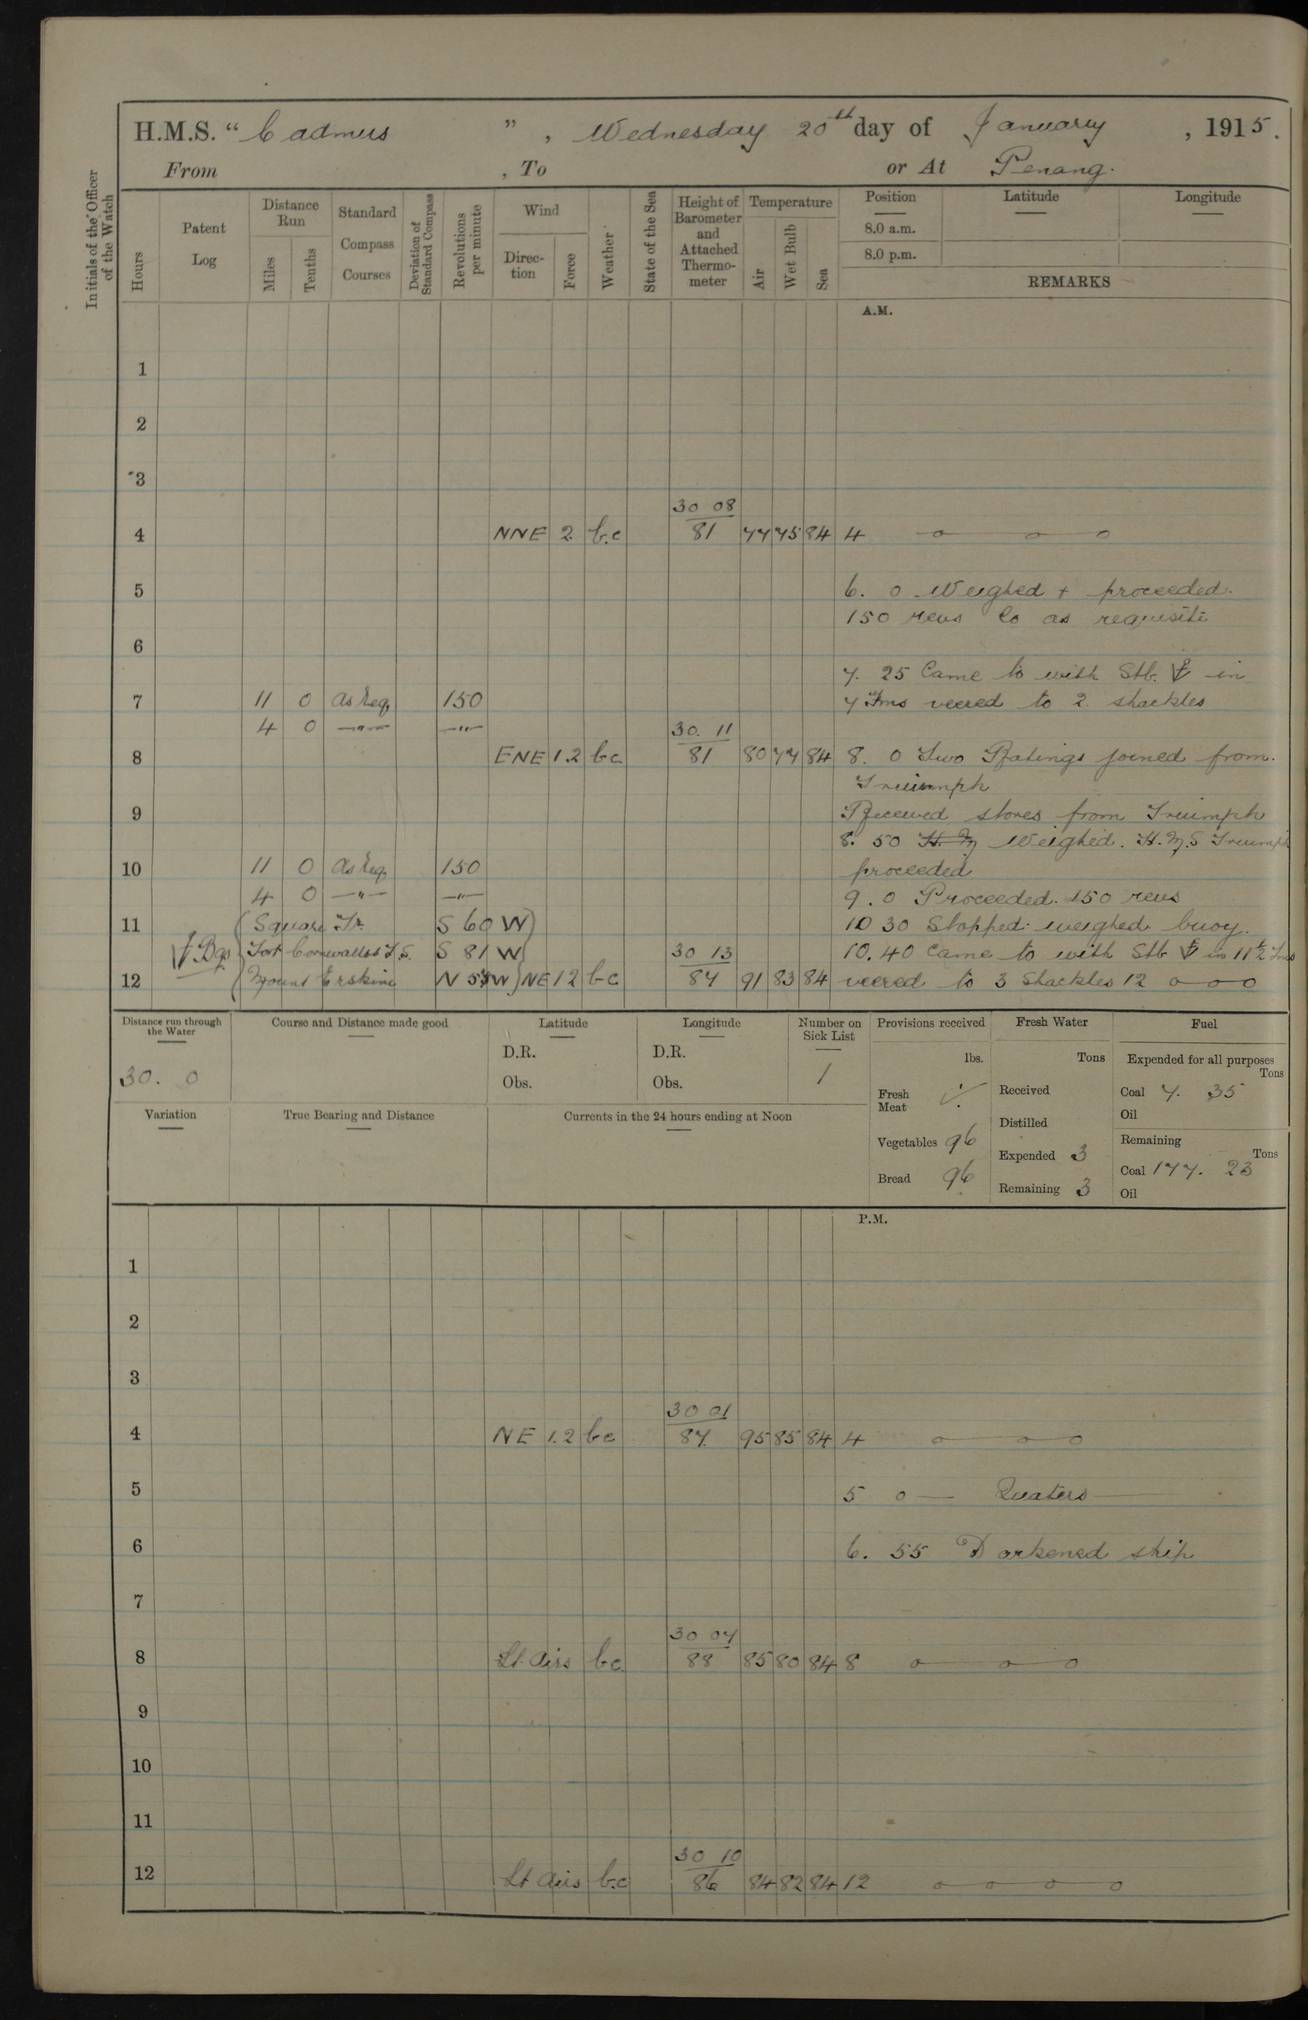 H.M.S. “Cadmus”, Wednesday 20th day of January, 1915.
From , To or At Penang.
Initials of the Officer of the Watch
Hours
Patent Log
Distance Run
Miles
Tenths
Standard Compass Courses
Deviation of Standard Compass
Revolutions per minute
Wind
Direction
Force
Weather
State of the Sea
Height of Barometer and Attached Thermometer
Temperature
Air
Wet Bulb
Sea
Position
Latitude
Longitude
8.0 a.m.
8.0 p.m.
REMARKS
A.M.
1
2
3
30 08
4 NNE 2 b.c 81 77 75 84 4 —o—o—o
5 6. 0 Weighed + proceeded.
150 revs Co as requisite
6
7. 25 Came to with Stb. ⚓ in
7 11 0 as Req. 150 7 Fms veered to 2 shackles
4 0 —"— —"— 30. 11
8 ENE 1.2 bc 81 80 77 84 8. 0 Two Ratings joined from.
Triumph
9 Received stores from Triumph
8. 50 H. M Weighed. H.M.S Triumph
10 11 0 as Req. 150 proceeded
4 0 —"— —"— 9. 0 Proceeded. 150 revs
11 Square Tr. S 60 W 10 30 Stopped. weighed buoy.
⚓ Bgs Fort Cornwallis F.S. S 81 W 30 13 10. 40 Came to with Stb ⚓ in 11½ Fms
12 Mount Erskine W NE 1 2 bc 87 91 83 84 veered to 3 shackles 12 o—o—o
Distance run through the Water
30. 0
Course and Distance made good
Latitude
D.R.
Obs.
Longitude
D.R.
Obs.
Number on Sick List
1
Provisions received
lbs.
Fresh Meat ✓
Vegetables 96
Bread 96
Fresh Water
Tons
Received
Distilled
Expended 3
Remaining 3
Fuel
Expended for all purposes
Tons
Coal 7. 35
Oil
Remaining
Tons
Coal 177. 23
Oil
Variation
True Bearing and Distance
Currents in the 24 hours ending at Noon
P.M.
1
2
3
30 01
4 NE 1.2 bc 87 95 85 84 4 o—o—o
5 5 0 — Quaters —
6 6. 55 Darkened ship
7
30 07
8 Lt. airs bc 88 85 80 84 8 o—o—o
9
10
11
30 10
12 Lt airs b.c 86 84 82 84 12 o—o—o—o